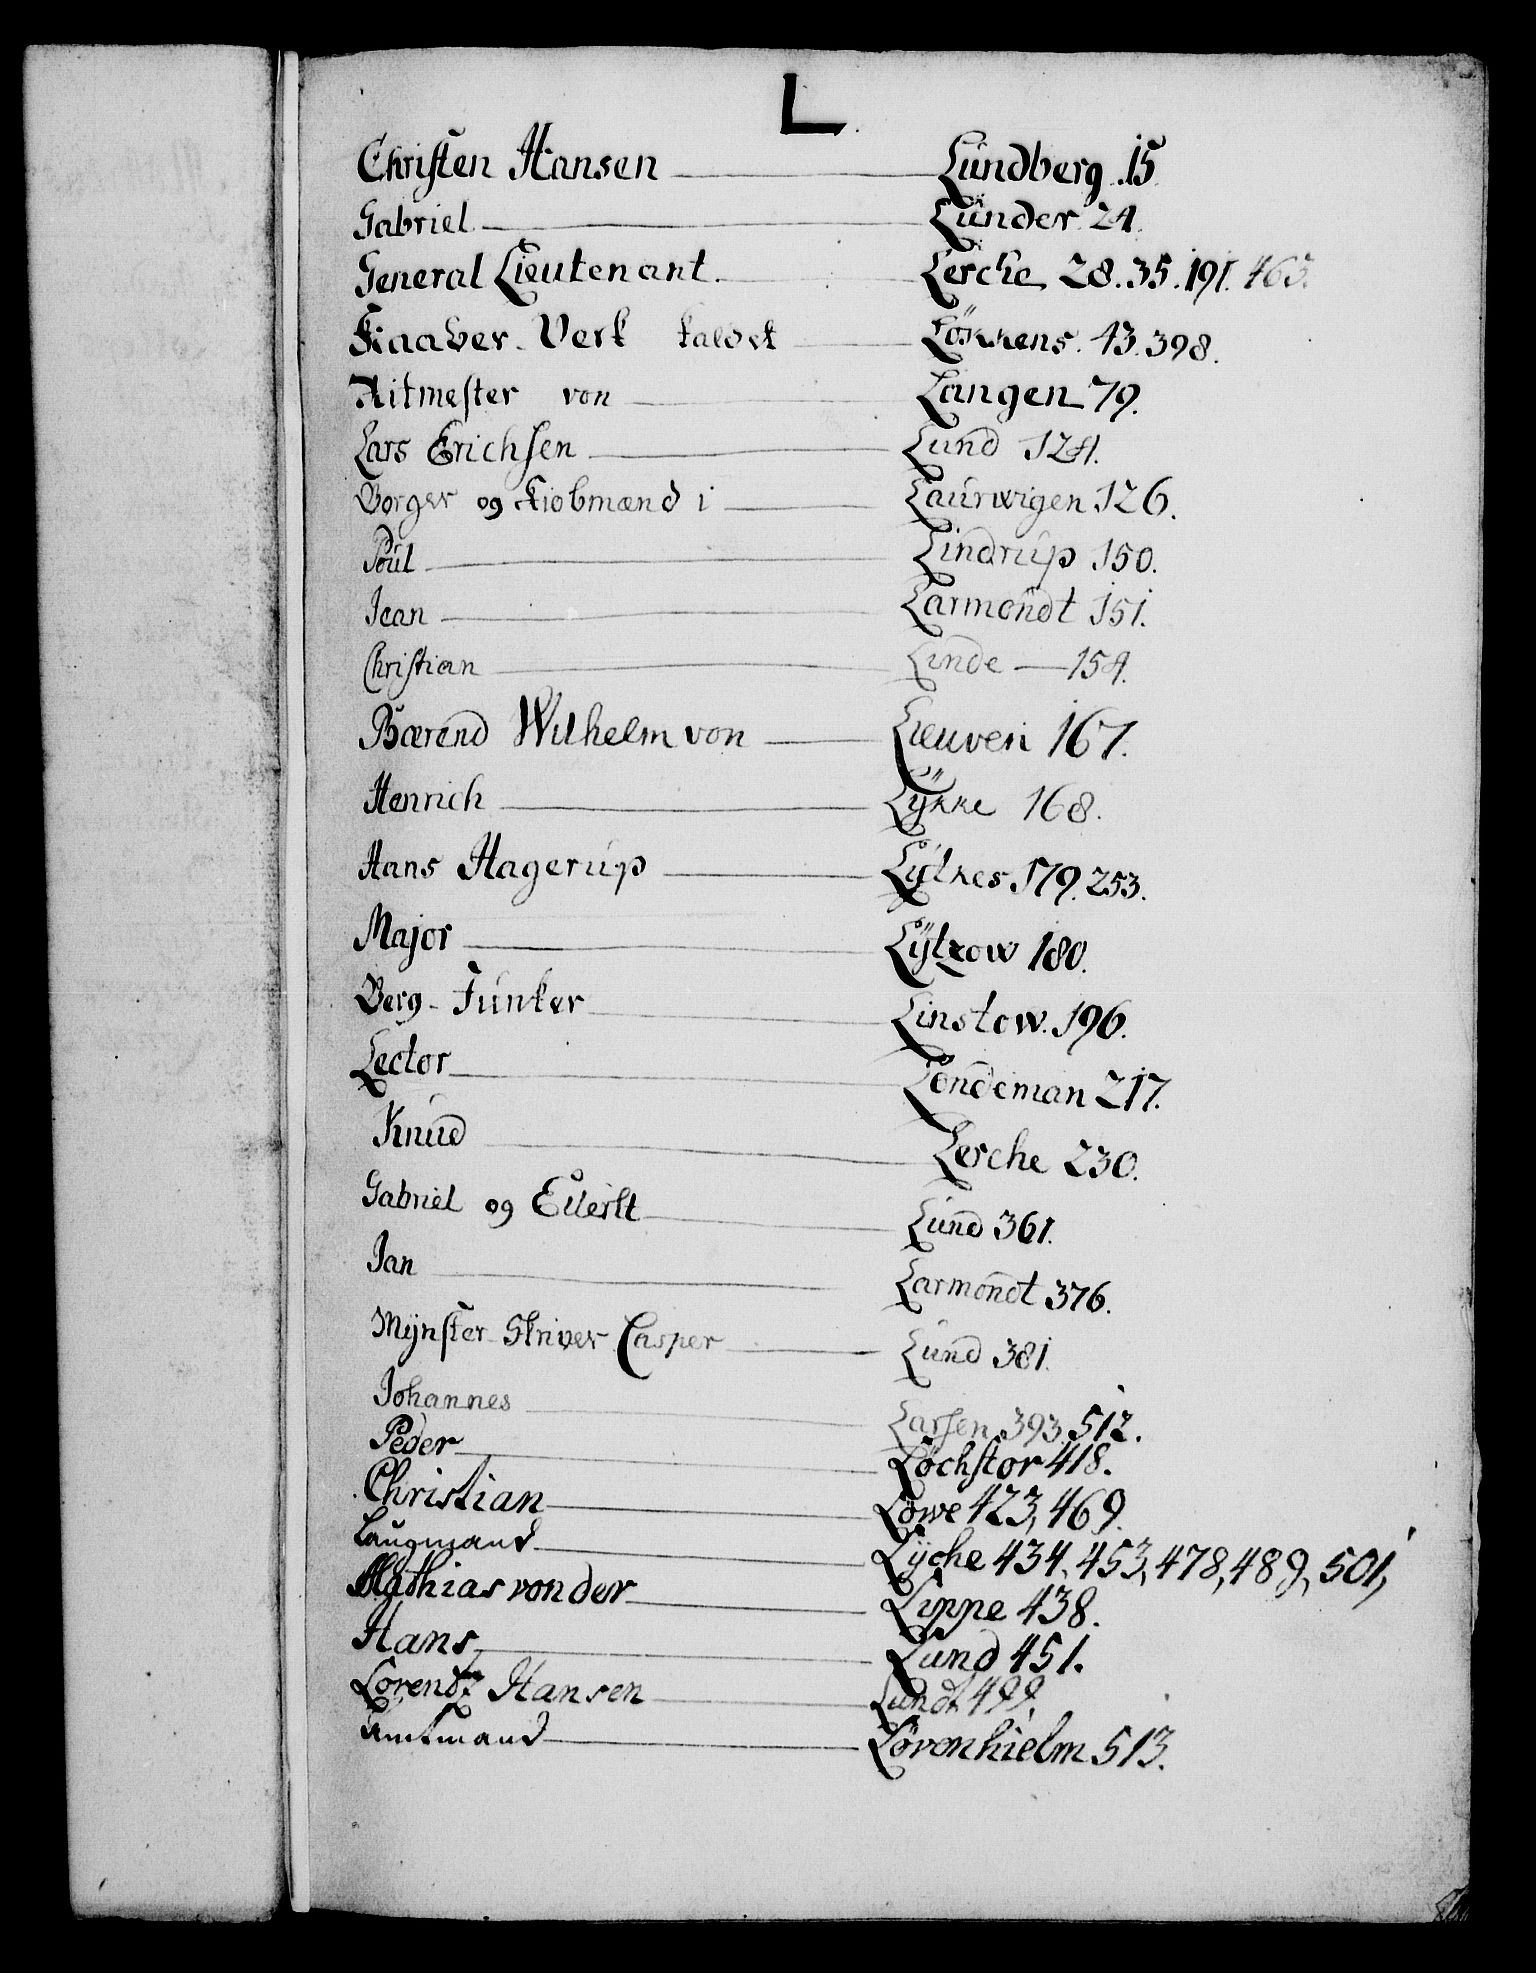 L.
Christen Hansen — Lúndberg .15
Gabriel — Lúnder 24.
General Lieutenant. — Lerche 28. 35. 191. 463.
Kaaber-Verk kaldet — Løkkens. 43. 398.
Ritmester von — Langen 79.
Lars Erichsen — Lund 124.
Borger og Kiobmænd i — Laúrwigen 126.
Poúl — Lindrúp 150.
Jean — Larmondt 151.
Christian — Linde — 154.
Bærend Wilhelm von — Lieuven 167.
Henrich — Lÿkke 168.
Hans Hagerúp — Lÿtkes 179. 253.
Major — Lÿtzow 180.
Berg-Júnker — Linstow. 196.
Lector — Londeman 217.
Knúd — Lerche 230.
Gabriel og Eilert — Lúnd 361.
Jan — Larmondt 376.
Mÿnster-Skriver Casper — Lúnd 381.
Johannes — Larsen 393. 512.
Peder — Löchstor 418.
Christian — Löwe 423, 469.
Laugmand — Lÿche 434, 453, 478, 489, 501,
Mathias von der — Lippe 438.
Hans — Lund 451.
Lorentz Hansen — Lundt 499.
Amtmand — Lövenhielm 513.